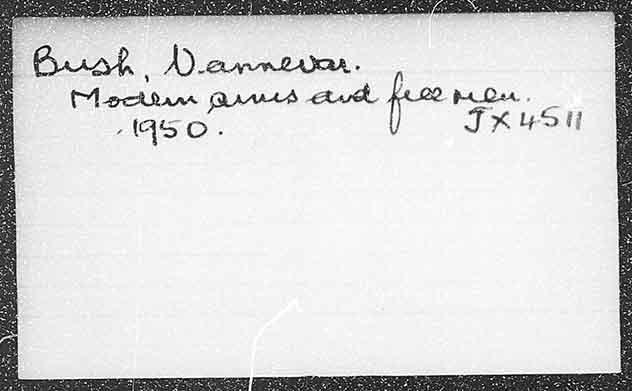 Bush, Vannevar.
Modern arms and free men.
1950. JX4511